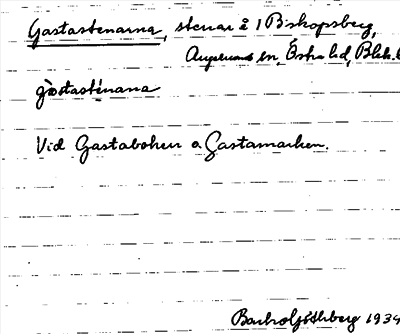 Gastastenarna, stenar å 1 Biskopsberg,
Augerums sn, Östra hd, Blek. l.
gàstasténana
Vid Gastaboken o Gastamarken.
1934